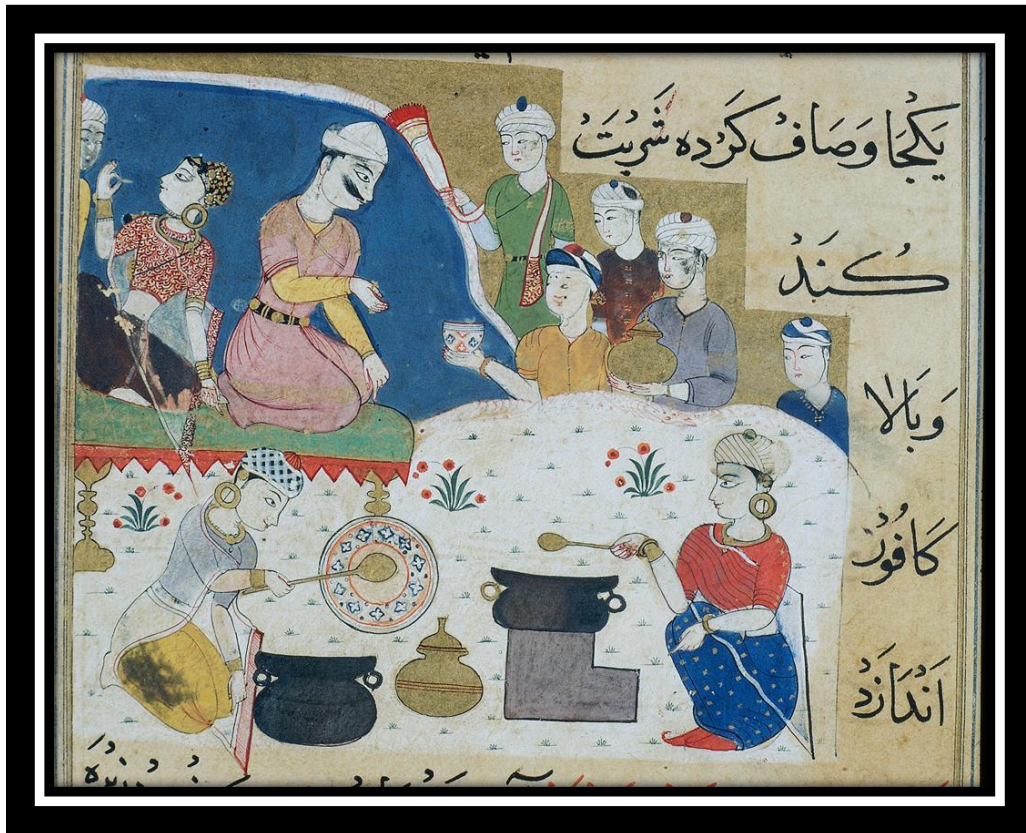 یَکجَا وَصَافْ کَرْدَه شَرْبَتْ
کُنَنْدْ
وَبَالَا
کَافُورْ
اَنْدَازَدْ